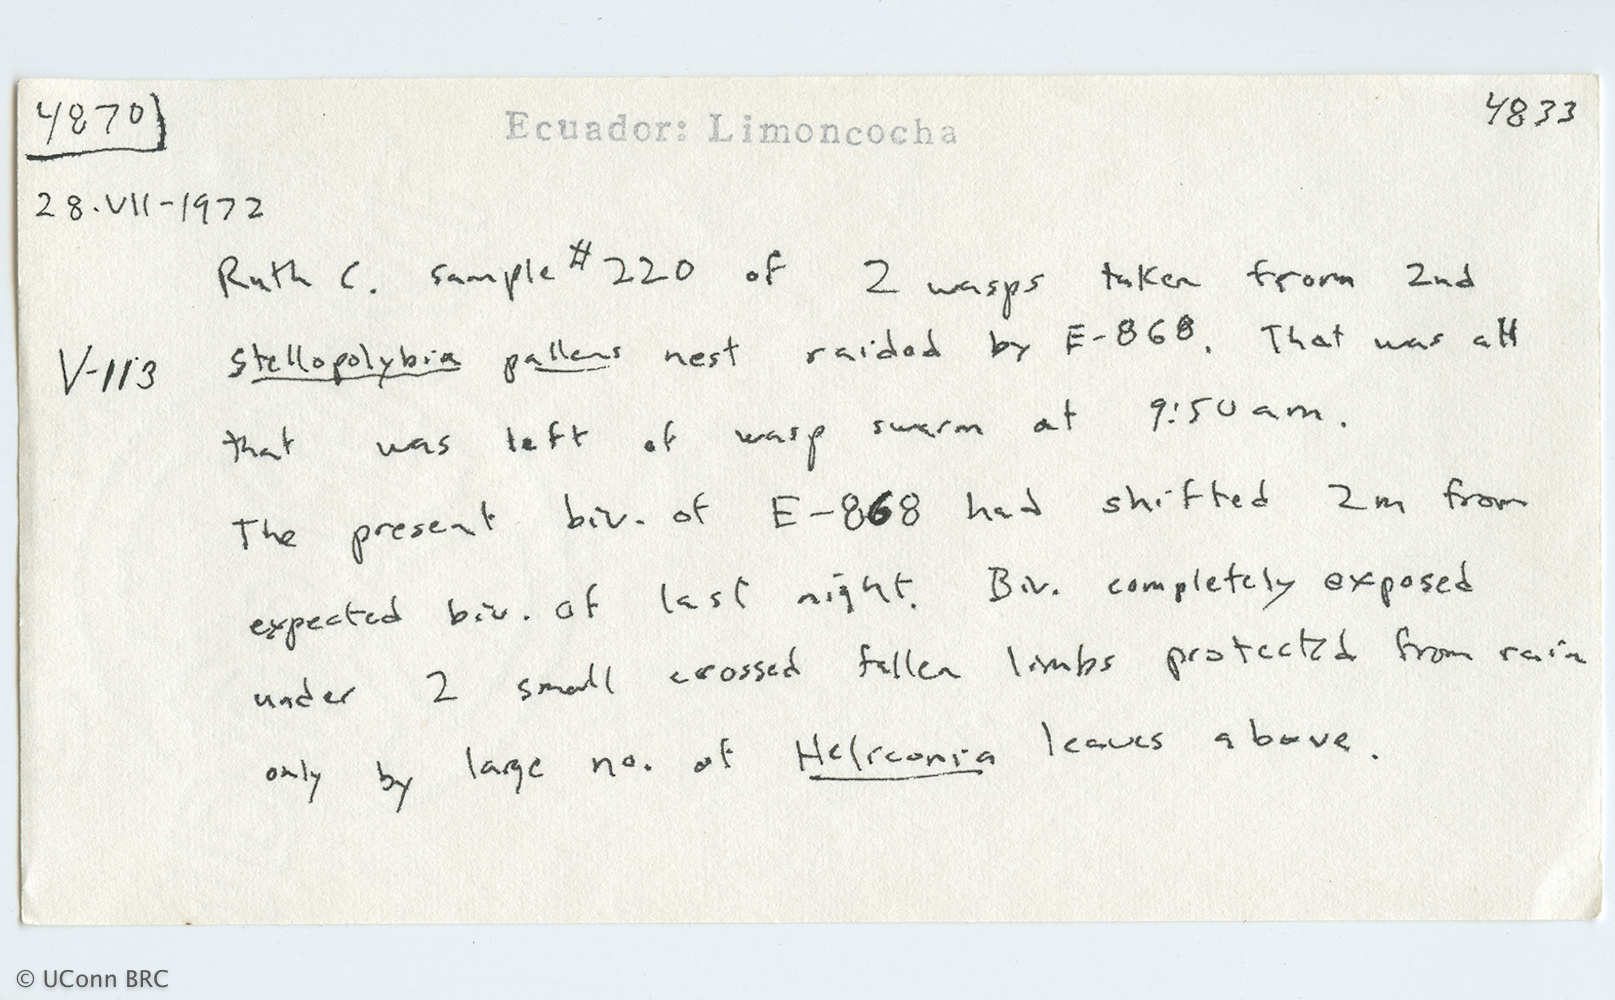 4870
Ecuador: Limoncocha
4833
28.VII-1972
Ruth C. sample #220 of 2 wasps taken from 2nd
V-113 Stellopolybia pallens nest raided by E-868. That was all
that was left of wasp swarm at 9:50 am.
The present biv. of E-868 had shifted 2m from
expected biv. of last night. Biv. completely exposed
under 2 small crossed fallen limbs protected from rain
only by large no. of Heliconia leaves above.
© UConn BRC